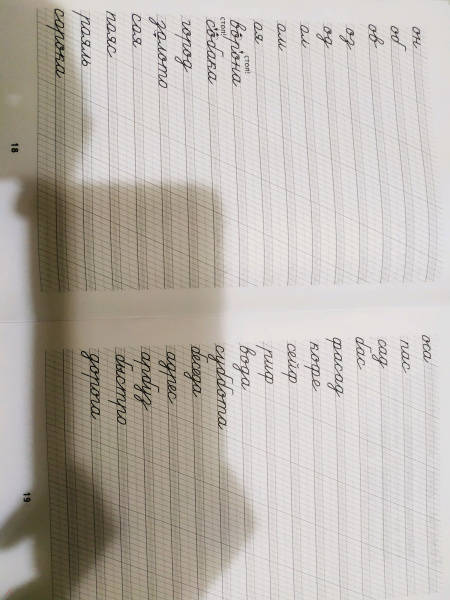 он
об
ов
оз
од
ол
ом
оя
стоп!
ворона
стоп!
собака
город
золото
соя
пояс
рояль
сорока
18
оса
пас
сад
бас
фасад
кофе
сейф
риф
вода
суббота
адрес
арбуз
быстро
дорога
19